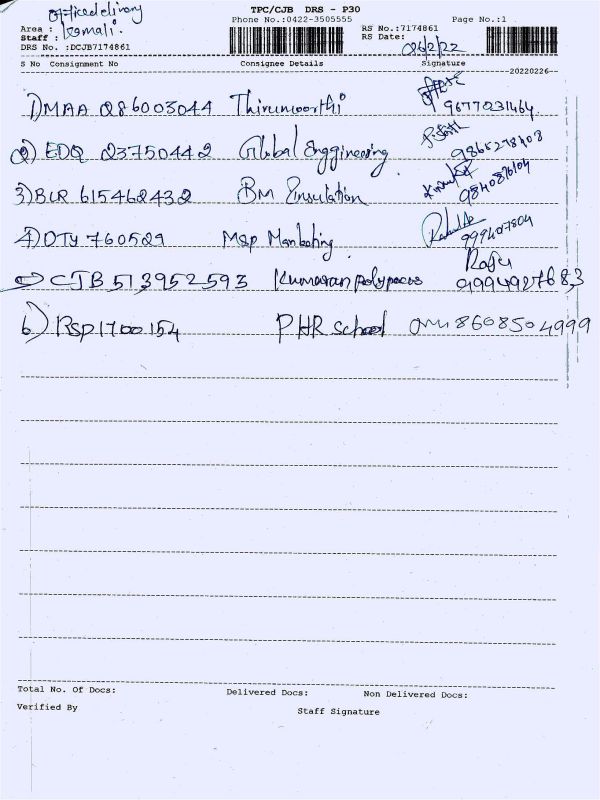 TPC/CJB DRS - P30
Office delivery
Phone No.:0422-3505555 Page No.:1
Area :
Staff : Komali.
RS No.:7174861
RS Date: 26/2/22
DRS No. :DCJB7174861
S No Consignment No Consignee Details Signature
20220226
1) MAA 286003044 Thirumoorthi 9677031464
2) EDQ 23750442 Global Enggineering 9865278408
3) BLR 615462432 BM Insulation 9840876104
4) OTY 760529 M&P Marketing 999407804
5) CJB 513952593 Kumaran polypacks Raju 9994927683
6) RSP1700154 PHR School 8608504999
Total No. Of Docs: Delivered Docs: Non Delivered Docs:
Verified By Staff Signature